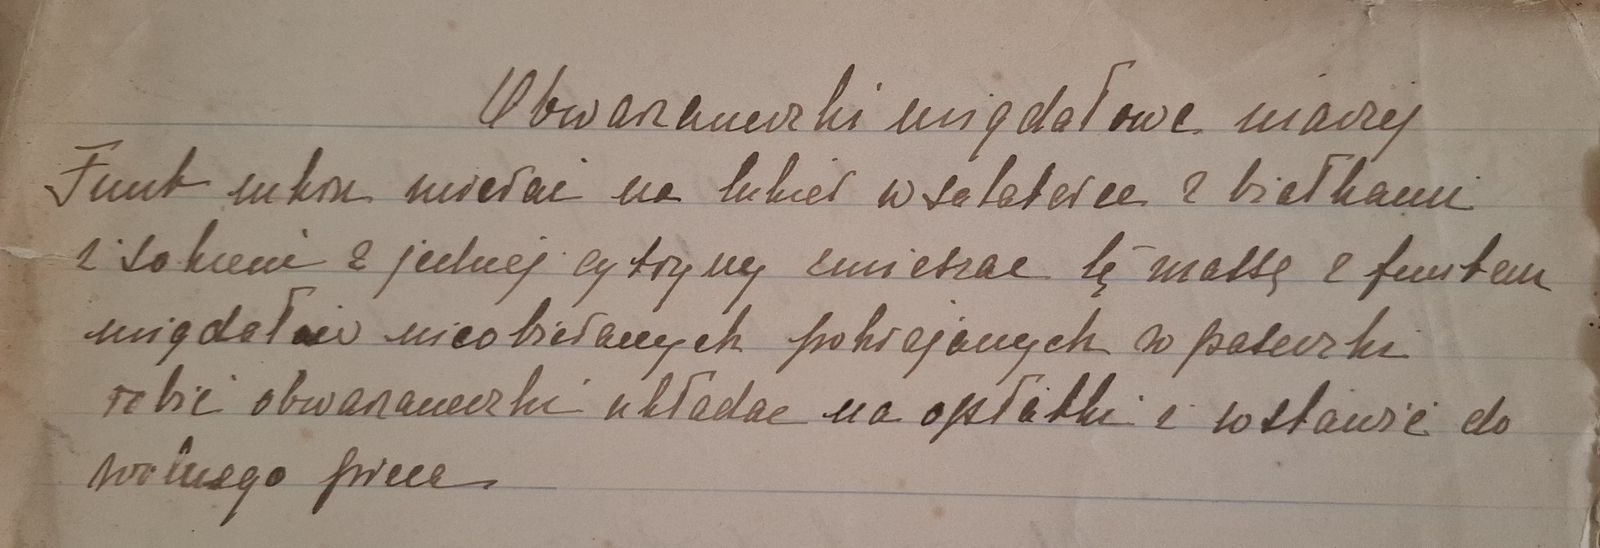 Obwarzaneczki migdałowe inaczej
Funt cukru mieszać na lukier w salaterce z białkami
i sokiem z jednej cytryny zmieszać tę massę z funtem
migdałów nieobieranych pokrajanych w paseczki
robić obwarzaneczki układać na opłatki i wstawić do
wolnego pieca